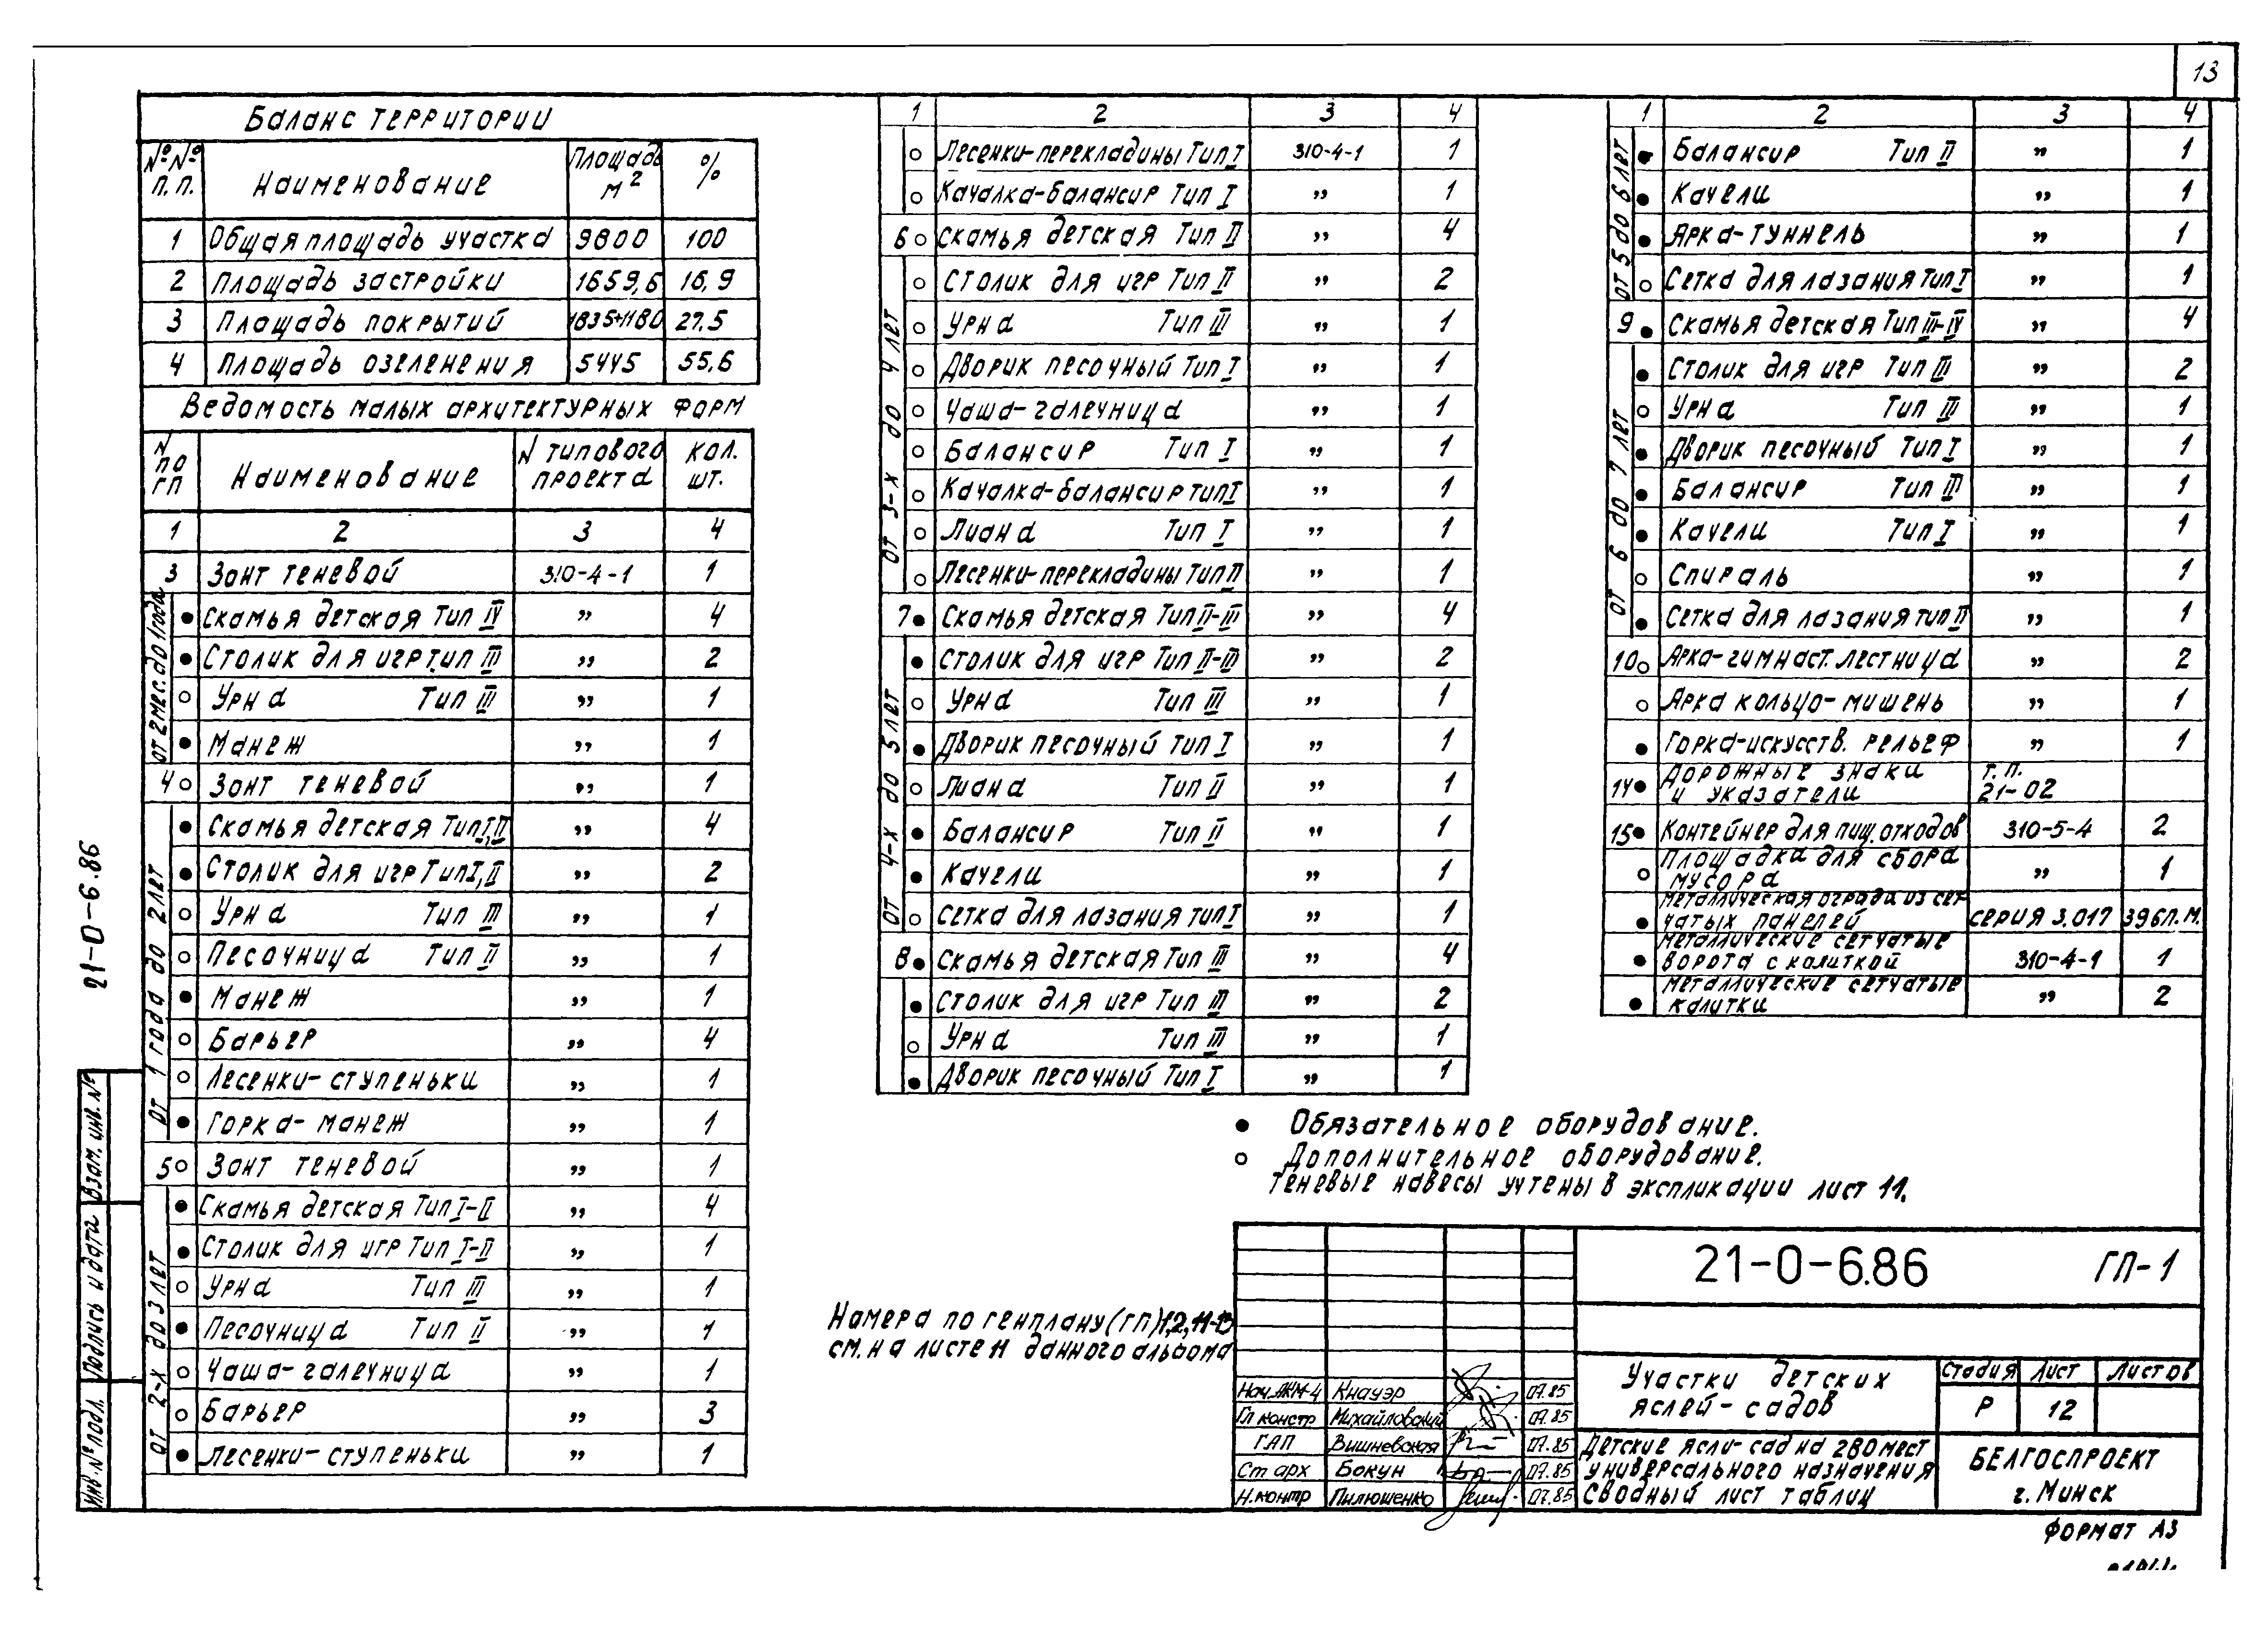 13
Баланс территории
№№ п.п. Наименование Площадь м² %
1 Общая площадь участка 9800 100
2 Площадь застройки 1659,6 16,9
3 Площадь покрытий 1835+1180 27.5
4 Площадь озеленения 5445 55,6
Ведомость малых архитектурных форм
N по ГП Наименование N типового проекта Кол. шт.
1 2 3 4
3 Зонт теневой 310-4-1 1
от 2 мес. до 1 года
● Скамья детская Тип IV „ 4
● Столик для игр тип III „ 2
○ Урна Тип III „ 1
● Манеж „ 1
4 ○ Зонт теневой „ 1
от 1 года до 2 лет
● Скамья детская Тип I,II „ 4
● Столик для игр Тип I,II „ 2
○ Урна Тип III „ 1
○ Песочница Тип II „ 1
● Манеж „ 1
○ Барьер „ 4
○ Лесенки-ступеньки „ 1
● Горка-манеж „ 1
5 ○ Зонт теневой „ 1
от 2-х до 3 лет
● Скамья детская Тип I-II „ 4
● Столик для игр Тип I-II „ 1
○ Урна Тип III „ 1
● Песочница Тип II „ 1
○ Чаша-галечница „ 1
○ Барьер „ 3
● Лесенки-ступеньки „ 1
1 2 3 4
○ Лесенки-перекладины Тип I 310-4-1 1
○ Качалка-балансир Тип I „ 1
6 ○ Скамья детская Тип II „ 4
от 3-х до 4 лет
○ Столик для игр Тип II „ 2
○ Урна Тип III „ 1
○ Дворик песочный Тип I „ 1
○ Чаша-галечница „ 1
○ Балансир Тип I „ 1
○ Качалка-балансир тип I „ 1
○ Лиана Тип I „ 1
○ Лесенки-перекладины Тип II „ 1
7 ● Скамья детская Тип II-III „ 4
от 4-х до 5 лет
● Столик для игр Тип II-III „ 2
○ Урна Тип III „ 1
● Дворик песочный Тип I „ 1
○ Лиана Тип II „ 1
● Балансир Тип II „ 1
● Качели „ 1
○ Сетка для лазания тип I „ 1
8 ● Скамья детская Тип III „ 4
● Столик для игр Тип III „ 2
○ Урна Тип III „ 1
● Дворик песочный Тип I „ 1
1 2 3 4
от 5 до 6 лет
● Балансир Тип II „ 1
● Качели „ 1
● Арка-туннель „ 1
○ Сетка для лазания Тип I „ 1
9 ● Скамья детская Тип III-IV „ 4
от 6 до 7 лет
● Столик для игр Тип III „ 2
○ Урна Тип III „ 1
● Дворик песочный Тип I „ 1
● Балансир Тип III „ 1
● Качели Тип I „ 1
○ Спираль „ 1
● Сетка для лазания тип II „ 1
10 ○ Арка-гимнаст. лестница „ 2
○ Арка кольцо-мишень „ 1
● Горка-искусств. рельеф „ 1
14 ● Дорожные знаки Т.П.
и указатели 21-02
15 ● Контейнер для пищ. отходов 310-5-4 2
○ Площадка для сбора
мусора „ 1
● Металлическая ограда из сет-
чатых панелей серия 3.017 396 п.м.
● Металлические сетчатые
ворота с калиткой 310-4-1 1
● Металлические сетчатые
калитки „ 2
● Обязательное оборудование.
○ Дополнительное оборудование.
Теневые навесы учтены в экспликации лист 11.
Намера по генплану (ГП) 1,2,11-13
см. на листе 11 данного альбома
21-0-6.86
Взам. инв. №
Подпись и дата
Инв. № подл.
21-0-6.86 ГП-1
Участки детских
яслей-садов
Стадия Лист Листов
Р 12
Нач. АКМ-4 Кнауэр 07.85
Гл констр Михайловский 07.85
ГАП Вишневская 07.85
Ст арх Бокун 07.85
Н.контр Пилюшенко 07.85
Детские ясли-сад на 280 мест
универсального назначения
Сводный лист таблиц
БЕЛГОСПРОЕКТ
г. Минск
Формат А3